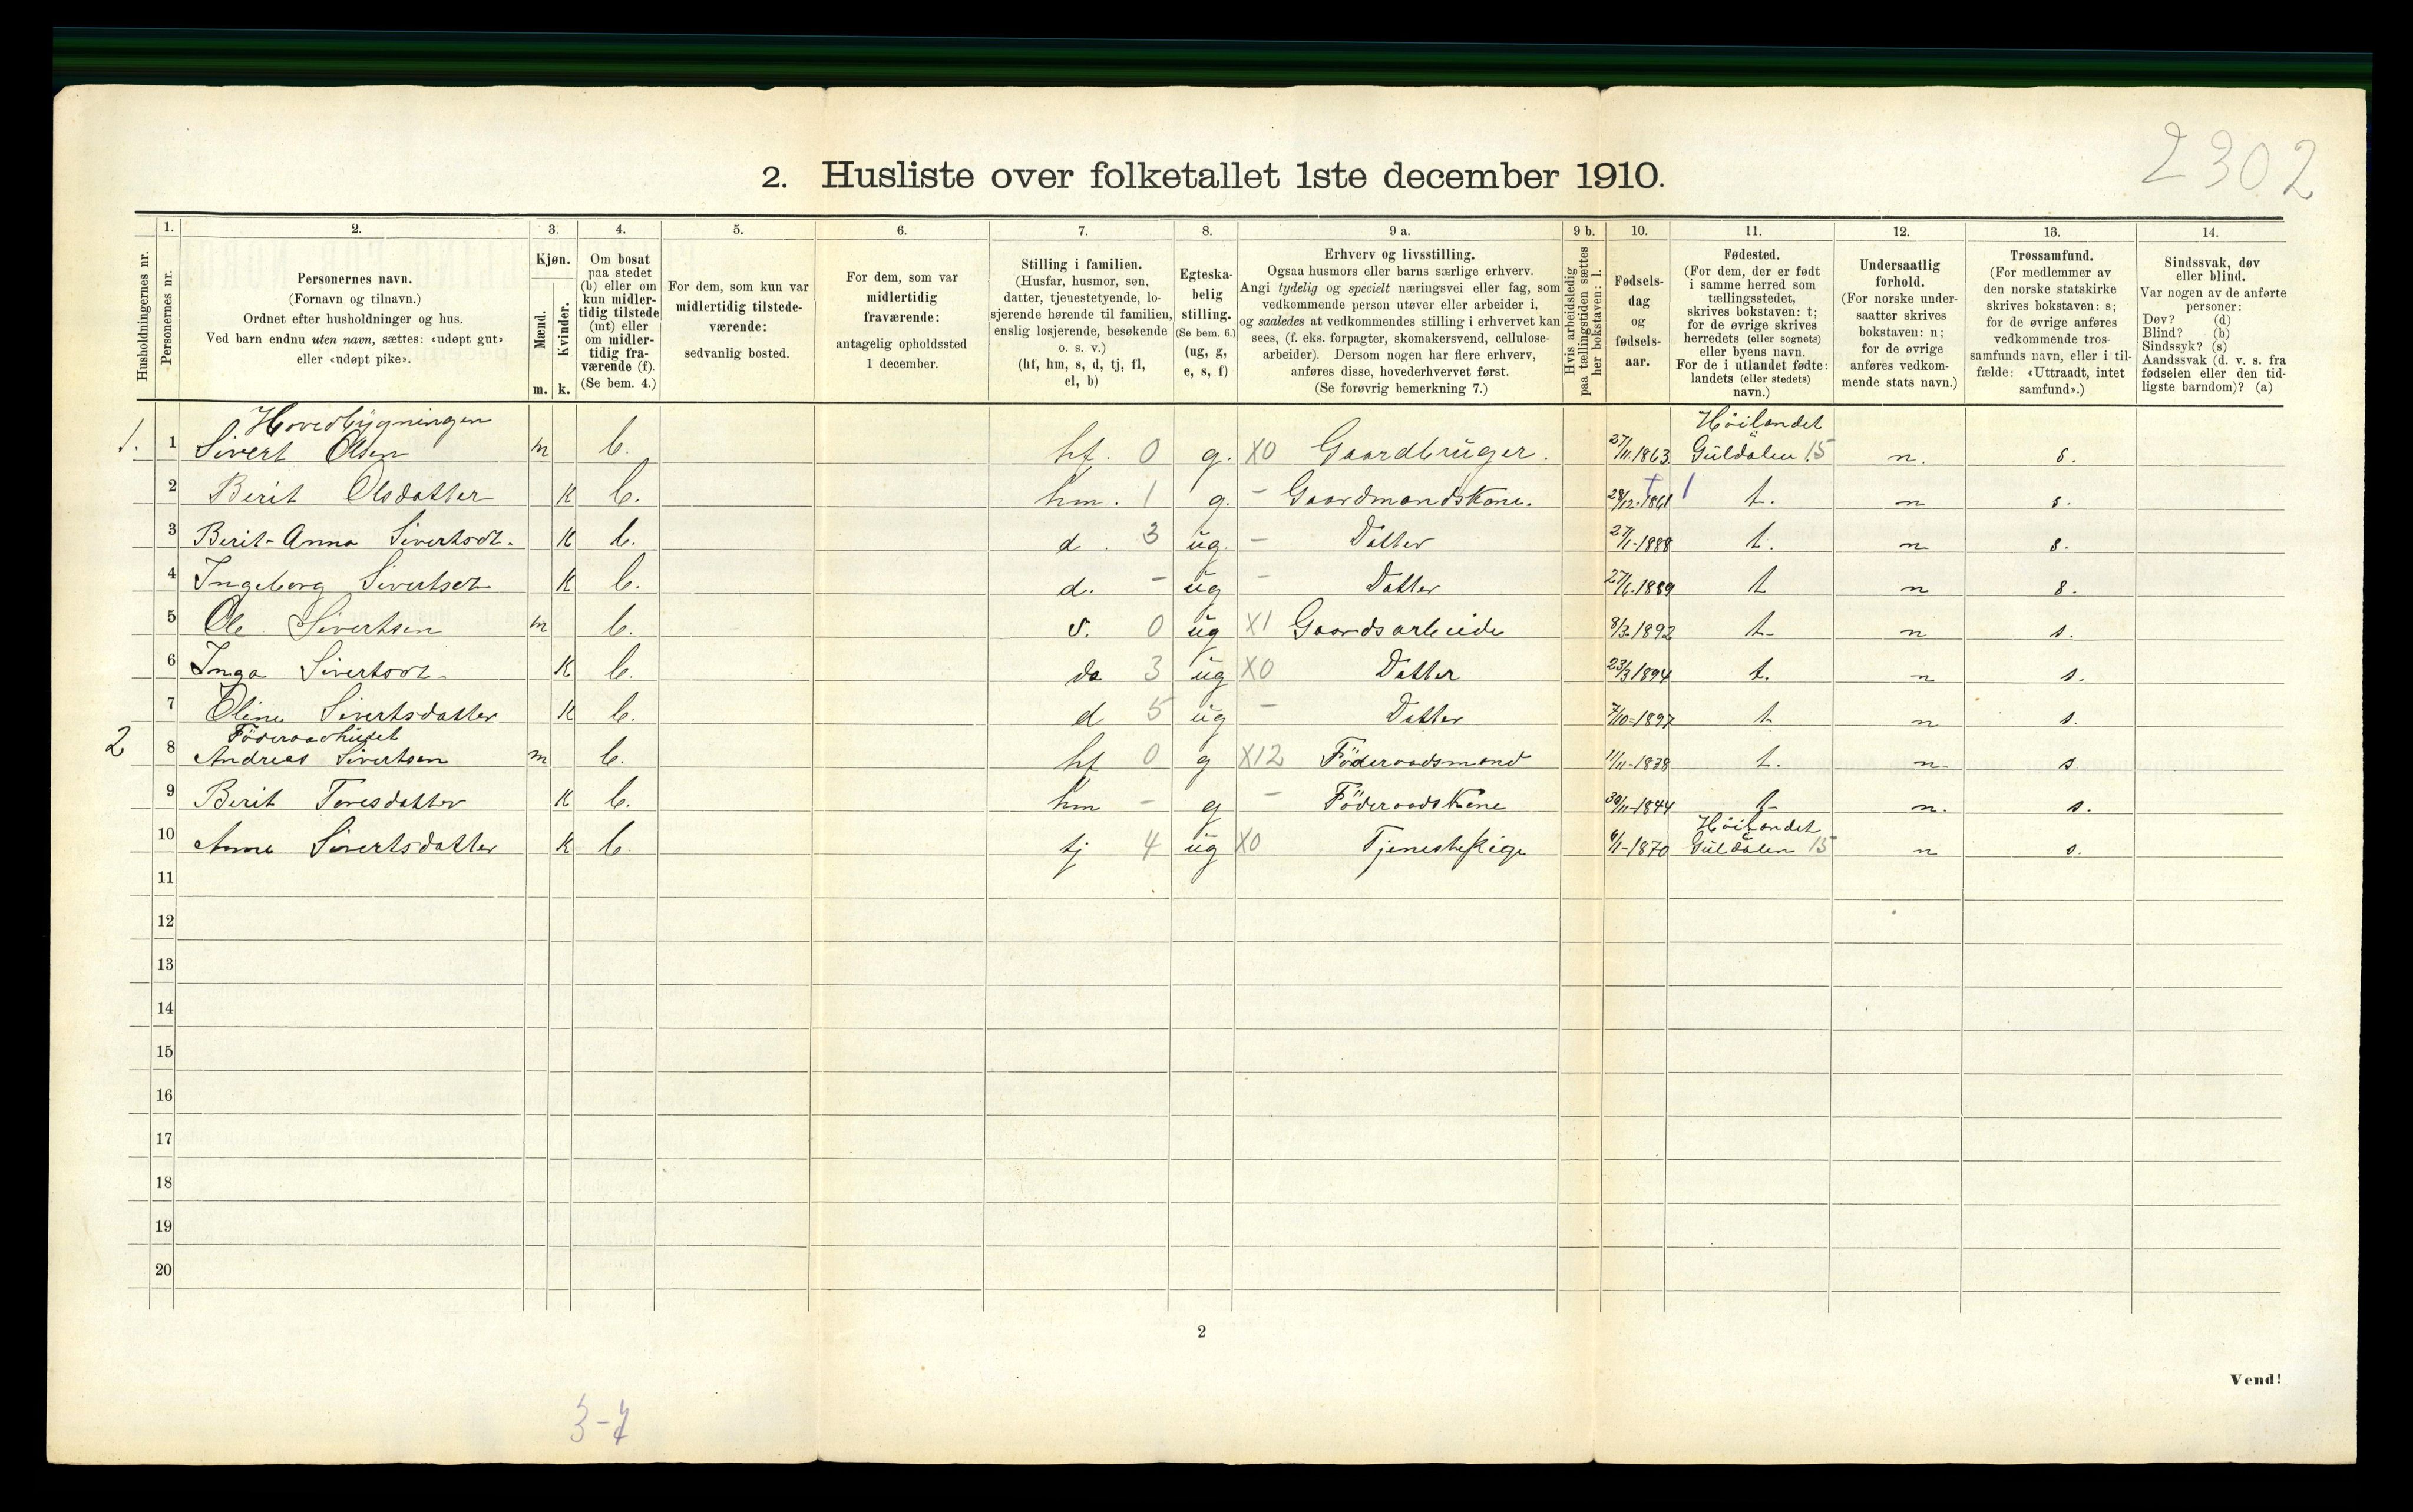 2302
2. Husliste over folketallet 1ste december 1910.
Husholdningernes nr.
1.
Personernes nr.
2.
Personernes navn.
(Fornavn og tilnavn.)
Ordnet efter husholdninger og hus.
Ved barn endnu uten navn, sættes: «udøpt gut»
eller «udøpt pike».
3.
Kjøn.
Mænd.
Kvinder.
m. k.
4.
Om bosat
paa stedet
(b) eller om
kun midler-
tidig tilstede
(mt) eller
om midler-
tidig fra-
værende (f).
(Se bem. 4.)
5.
For dem, som kun var
midlertidig tilstede-
værende:
sedvanlig bosted.
6.
For dem, som var
midlertidig
fraværende:
antagelig opholdssted
1 december.
7.
Stilling i familien.
(Husfar, husmor, søn,
datter, tjenestetyende, lo-
sjerende hørende til familien,
enslig losjerende, besøkende
o. s. v.)
(hf, hm, s, d, tj, fl,
el, b)
8.
Egteska-
belig
stilling.
(Se bem. 6.)
(ug, g,
e, s, f)
9 a.
Erhverv og livsstilling.
Ogsaa husmors eller barns særlige erhverv.
Angi tydelig og specielt næringsvei eller fag, som
vedkommende person utøver eller arbeider i,
og saaledes at vedkommendes stilling i erhvervet kan
sees, (f. eks. forpagter, skomakersvend, cellulose-
arbeider). Dersom nogen har flere erhverv,
anføres disse, hovederhvervet først.
(Se forøvrig bemerkning 7.)
9 b.
Hvis arbeidsledig
paa tællingstiden sættes
her bokstaven: l.
10.
Fødsels-
dag
og
fødsels-
aar.
11.
Fødested.
(For dem, der er født
i samme herred som
tællingsstedet,
skrives bokstaven: t;
for de øvrige skrives
herredets (eller sognets)
eller byens navn.
For de i utlandet fødte:
landets (eller stedets)
navn.)
12.
Undersaatlig
forhold.
(For norske under-
saatter skrives
bokstaven: n;
for de øvrige
anføres vedkom-
mende stats navn.)
13.
Trossamfund.
(For medlemmer av
den norske statskirke
skrives bokstaven: s;
for de øvrige anføres
vedkommende tros-
samfunds navn, eller i til-
fælde: «Uttraadt, intet
samfund».)
14.
Sindssvak, døv
eller blind.
Var nogen av de anførte
personer:
Døv? (d)
Blind? (b)
Sindssyk? (s)
Aandssvak (d. v. s. fra
fødselen eller den tid-
ligste barndom)? (a)
Hovedbygningen Höilandet
1. 1 Sivert Olsen m b. hf. 0 g. X0 Gaardbruger. 27/11.1863 Guldalen 15 n. s.
2 Berit Olsdatter K b. hm. 1 g. - Gaardmandskone. 28/12-1861 t. n s.
3 Berit-Anna Sivertsdt. K b. d. 3 ug. - Datter 27/1-1888 t. n s.
4 Ingeborg Sivertsdt K b. d. - ug - Datter 27/6-1889 t n s.
5 Ole Sivertsen m b. s. 0 ug X1 Gaardsarbeide 8/3-1892 t- n s.
6 Inga Sivertsdt. K b. da 3 ug X0 Datter 23/3 1894 t. n s.
7 Oline Sivertsdatter K b. d 5 ug - Datter 7/10-1897 t n s.
Föderaadhuset
2 8 Andreas Sivertsen m b. hf 0 g X12 Föderaadsmand 11/11-1838 t. n- s
9 Berit Toresdatter K b. hm - g - Föderaadskone 30/11-1844 t- n. s.
Höilandet
10 Anne Sivertsdatter K b. tj 4 ug X0 Tjenestepige 6/1-1870 Guldalen 15 n s.
11
12
13
14
15
16
17
18
19
20
2
Vend!
3-7